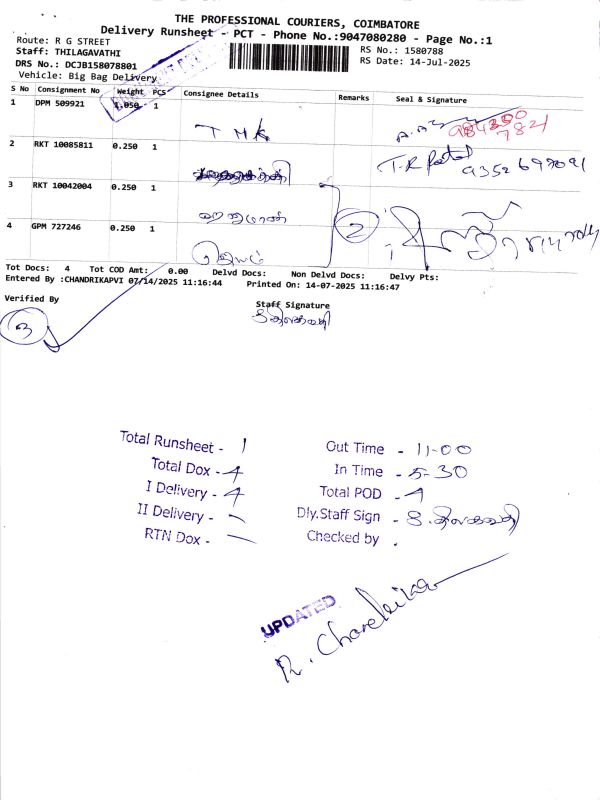 THE PROFESSIONAL COURIERS, COIMBATORE
Delivery Runsheet - PCT - Phone No.:9047080280 - Page No.:1
Route: R G STREET
Staff: THILAGAVATHI
DRS No.: DCJB158078801
Vehicle: Big Bag Delivery
RS No.: 1580788
RS Date: 14-Jul-2025
S No Consignment No Weight PCS Consignee Details Remarks Seal & Signature
1 DPM 509921 1.050 1
T M K
984350
7821
2 RKT 10085811 0.250 1
T-R Patel 9352697091
3 RKT 10042004 0.250 1
2
4 GPM 727246 0.250 1
Tot Docs: 4 Tot COD Amt: 0.00 Delvd Docs: Non Delvd Docs: Delvy Pts:
Entered By :CHANDRIKAPVI 07/14/2025 11:16:44 Printed On: 14-07-2025 11:16:47
Verified By
Staff Signature
3
Total Runsheet - 1
Total Dox - 4
I Delivery - 4
II Delivery -
RTN Dox -
Out Time - 11-00
In Time - 5-30
Total POD - 4
Dly.Staff Sign - S. திலகவதி
Checked by .
UPDATED
R. Chandrika